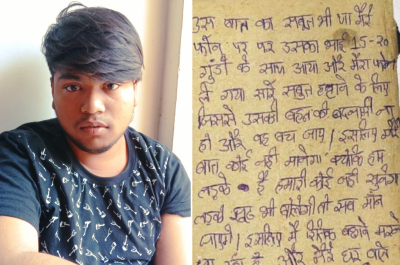 उस बात का सबूत भी था मेरे
फोन पर पर उसका भाई 15-20
गुंडों के साथ आया और मेरा फोन
ले गया सारे सबूत हटाने के लिए
जिससे उसकी बहन की बदनामी ना
हो और वह बच जाए। इसलिए मेरी
बात कोई नहीं मानेगा क्योंकि हम
लड़के हैं हमारी कोई नहीं सुनेगा
लड़की झूठ भी बोलेगी तो सब मान
जाएंगे। इसलिए मैं
और मेरे घर वाले